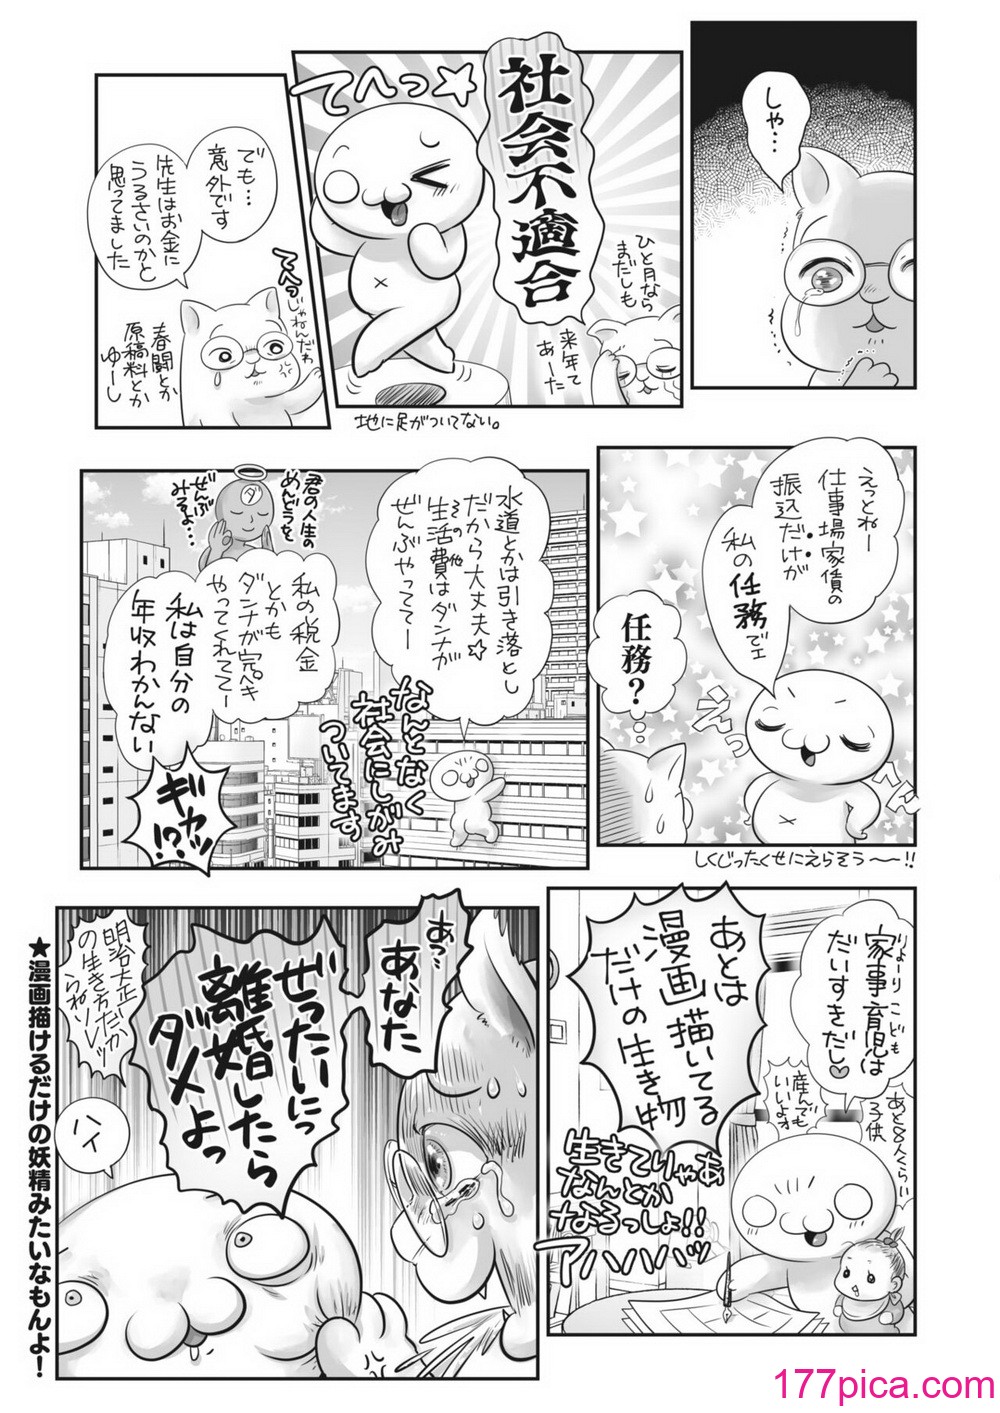 しゃ…
社会不適合
てへっ☆
ひと月なら
まだしも
来年て
あーた
地に足がついてない。
でも…
意外です
先生はお金に
うるさいのかと
思ってました
てへっ
じゃねんだわ
春闘とか
原稿料とか
ゆーし
えっとねー
仕事場家賃の
振込だけが
私の任務でェ
任務?
えっ
へん
しくじったくせにえらそう〜ー!!
水道とかは引き落とし
だから大丈夫☆
その他
生活費はダンナが
ぜんぶやっててー
なんとなく
社会にしがみ
ついてます
君の人生の
めんどうを
ぜんぶ
みるよ…
ダ
私の税金
とかも
ダンナが完ペキ
やってくれててー
私は自分の
年収わかんない
ギャッ
!?
りょーり こども
家事育児は
だいすきだし♡
あと8人くらい
子供
産んでも
いいよォ
あとは
漫画描いてる
だけの生き物
生きてりゃあ
なんとか
なるっしょ!!
アハハハハッ
あっ…
あなた
ぜったいに
離婚したら
ダメよっ
明治大正
の生き方だか
らねソレッ
ハイ
★漫画描けるだけの妖精みたいなもんよ!
177pica.com